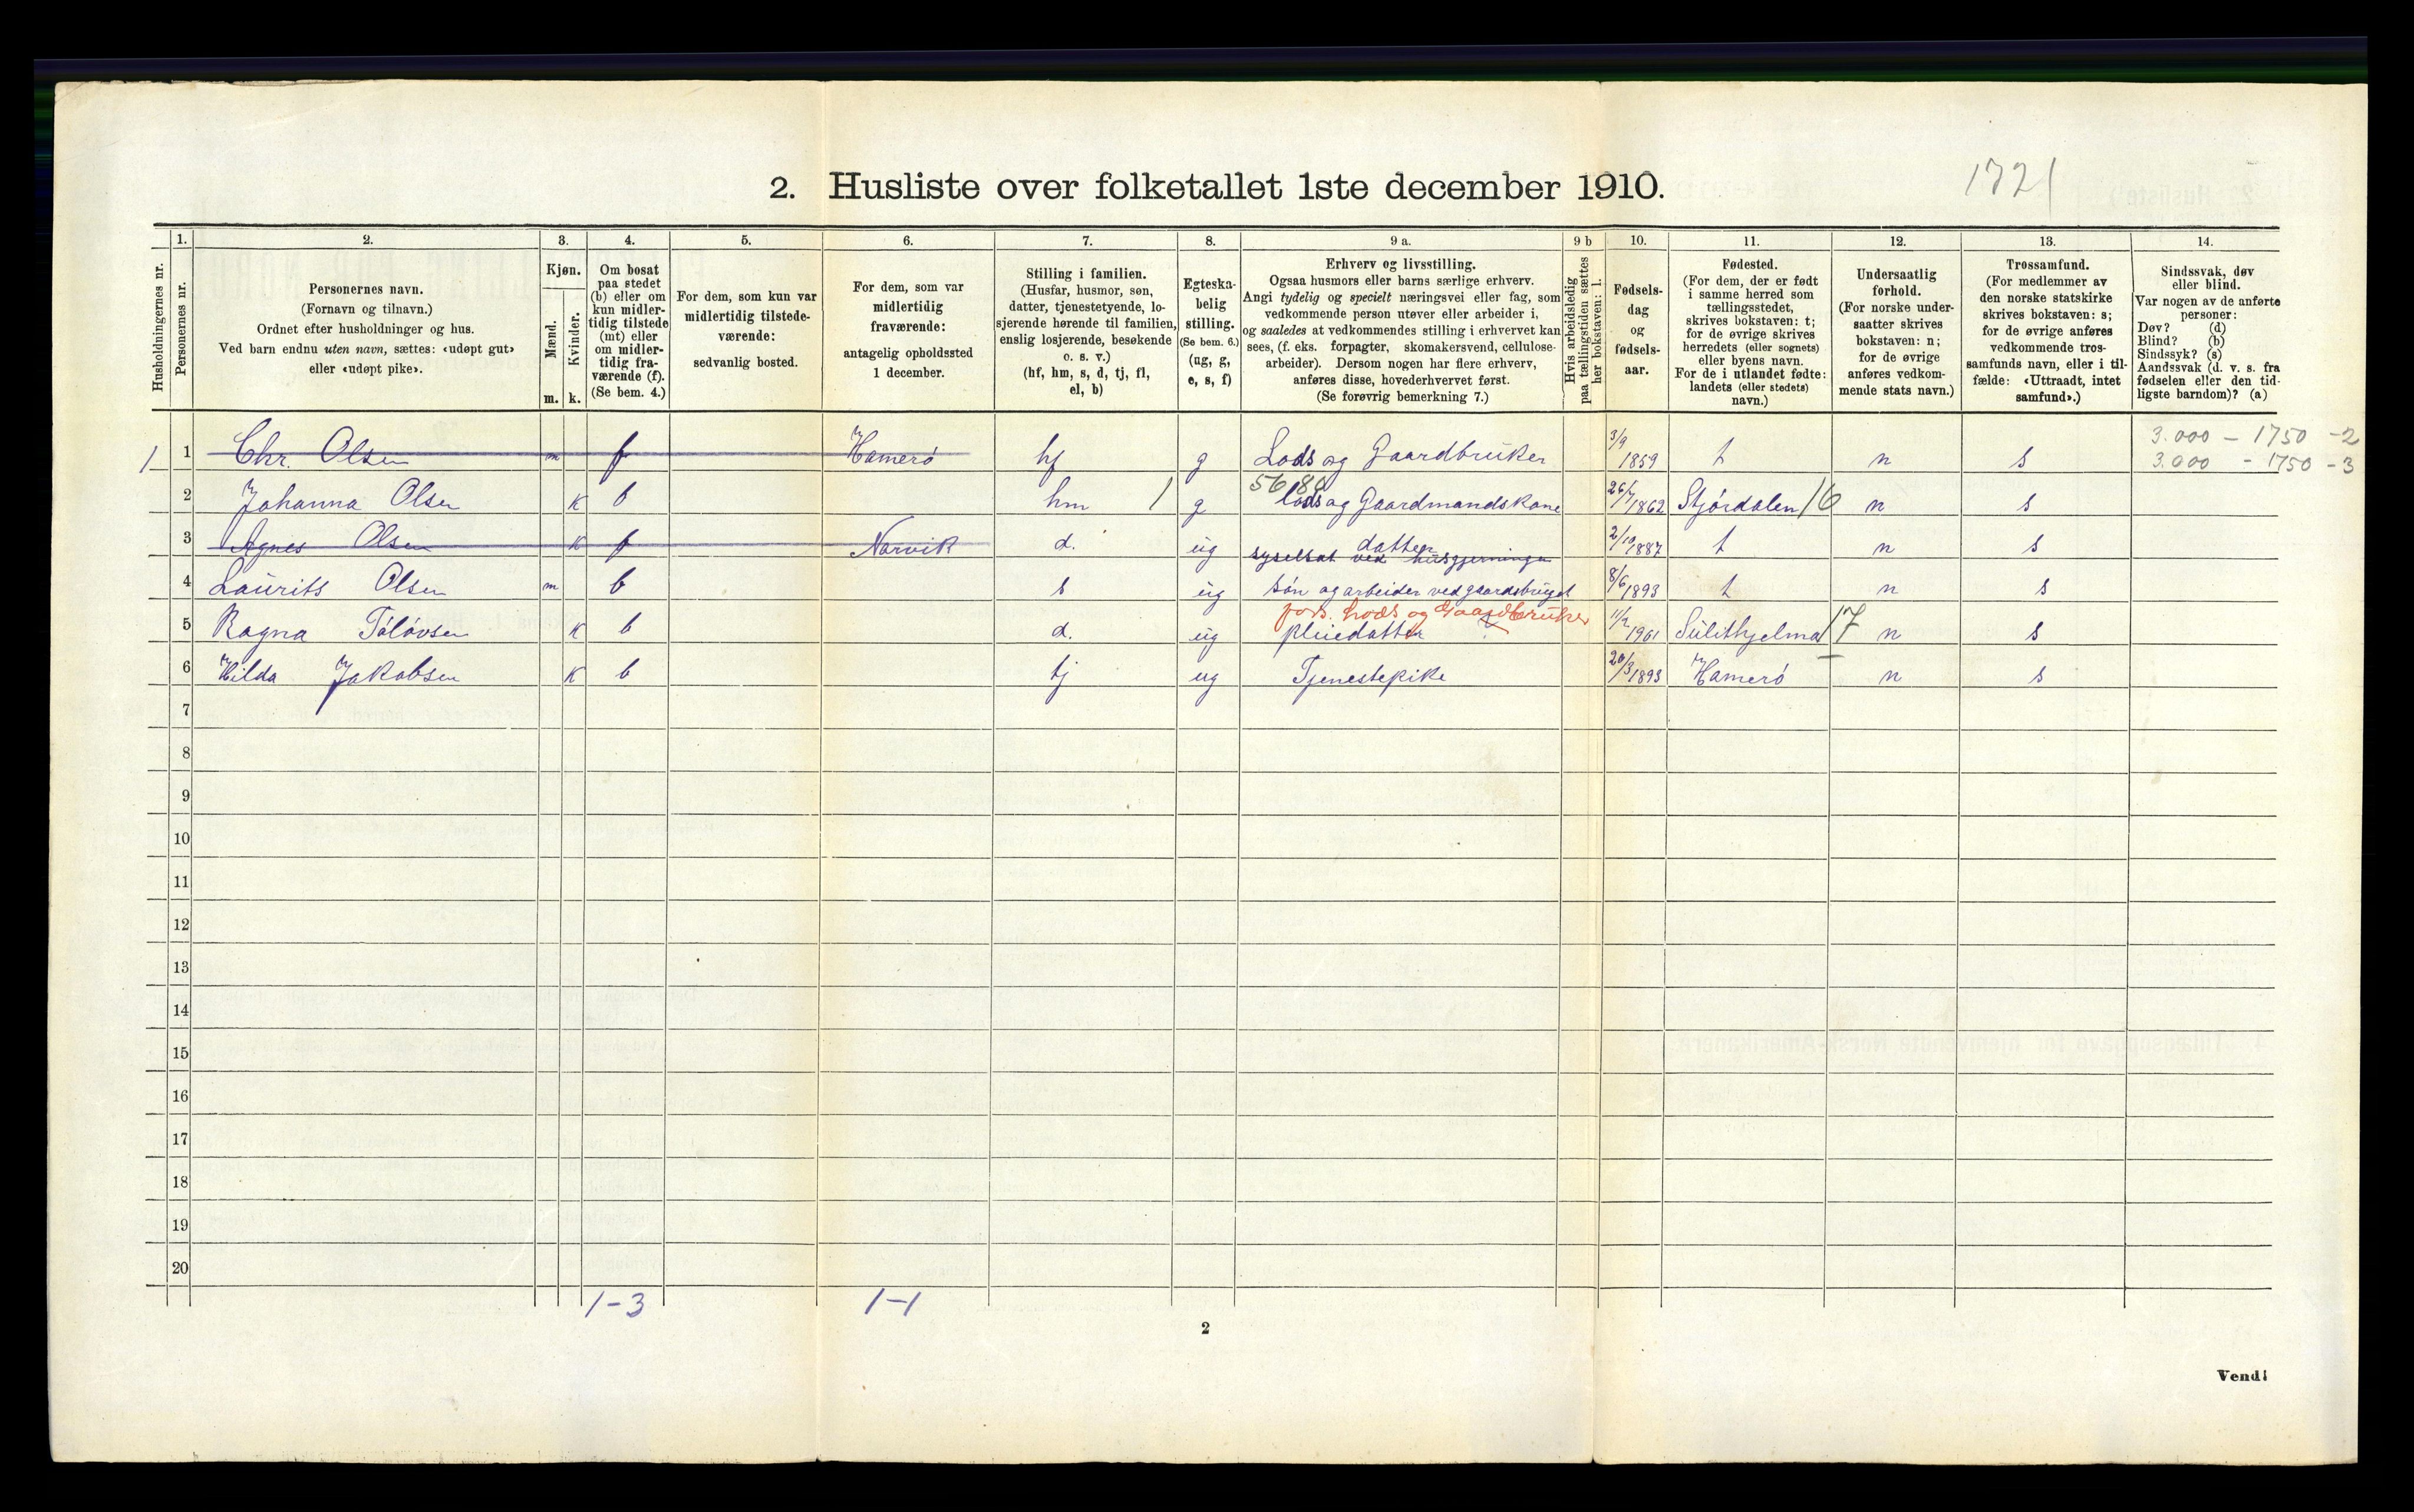 1721
2. Husliste over folketallet 1ste december 1910.
Husholdningernes nr.
1. Personernes nr.
2. Personernes navn.
(Fornavn og tilnavn.)
Ordnet efter husholdninger og hus.
Ved barn endnu uten navn, sættes: «udøpt gut»
eller «udøpt pike».
3. Kjøn.
Mænd. m.
Kvinder. k.
4. Om bosat
paa stedet
(b) eller om
kun midler-
tidig tilstede
(mt) eller
om midler-
tidig fra-
værende (f).
(Se bem. 4.)
5. For dem, som kun var
midlertidig tilstede-
værende:
sedvanlig bosted.
6. For dem, som var
midlertidig
fraværende:
antagelig opholdssted
1 december.
7. Stilling i familien.
(Husfar, husmor, søn,
datter, tjenestetyende, lo-
sjerende hørende til familien,
enslig losjerende, besøkende
o. s. v.)
(hf, hm, s, d, tj, fl,
el, b)
8. Egteska-
belig
stilling.
(Se bem. 6.)
(ug, g,
e, s, f)
9 a. Erhverv og livsstilling.
Ogsaa husmors eller barns særlige erhverv.
Angi tydelig og specielt næringsvei eller fag, som
vedkommende person utøver eller arbeider i,
og saaledes at vedkommendes stilling i erhvervet kan
sees, (f. eks. forpagter, skomakersvend, cellulose-
arbeider). Dersom nogen har flere erhverv,
anføres disse, hovederhvervet først.
(Se forøvrig bemerkning 7.)
9 b Hvis arbeidsledig
paa tællingstiden sættes
her bokstaven: l.
10. Fødsels-
dag
og
fødsels-
aar.
11. Fødested.
(For dem, der er født
i samme herred som
tællingsstedet,
skrives bokstaven: t;
for de øvrige skrives
herredets (eller sognets)
eller byens navn.
For de i utlandet fødte:
landets (eller stedets)
navn.)
12. Undersaatlig
forhold.
(For norske under-
saatter skrives
bokstaven: n;
for de øvrige
anføres vedkom-
mende stats navn.)
13. Trossamfund.
(For medlemmer av
den norske statskirke
skrives bokstaven: s;
for de øvrige anføres
vedkommende tros-
samfunds navn, eller i til-
fælde: «Uttraadt, intet
samfund».)
14. Sindssvak, døv
eller blind.
Var nogen av de anførte
personer:
Døv? (d)
Blind? (b)
Sindssyk? (s)
Aandssvak (d. v. s. fra
fødselen eller den tid-
ligste barndom)? (a)
1 1 Chr. Olsen m f Hamerø hf g Lods og Gaardbruker 3/9 1859 t n s 3.000 - 1750 - 2
3.000 - 1750 - 3
2 Johanna Olsen k b hm 1 g lods og Gaardmandskone 26/7 1862 Stjørdalen 16 n s
3 Agnes Olsen k f Narvik d. ug datter
syselsat ved husgjerninger 2/10 1887 t n s
4 Laurits Olsen m b s ug søn og arbeider ved gaardsbruget 8/6 1893 t n s
fors. Lods og Gaardbruker
5 Ragna Toløvsen k b d. ug pleiedatter 11/2 1901 Sulithjelma 17 n s
6 Hilda Jakobsen k b tj ug Tjenestepike 20/3 1893 Hamerø n s
7
8
9
10
11
12
13
14
15
16
17
18
19
20
1-3 1-1
2
Vend!